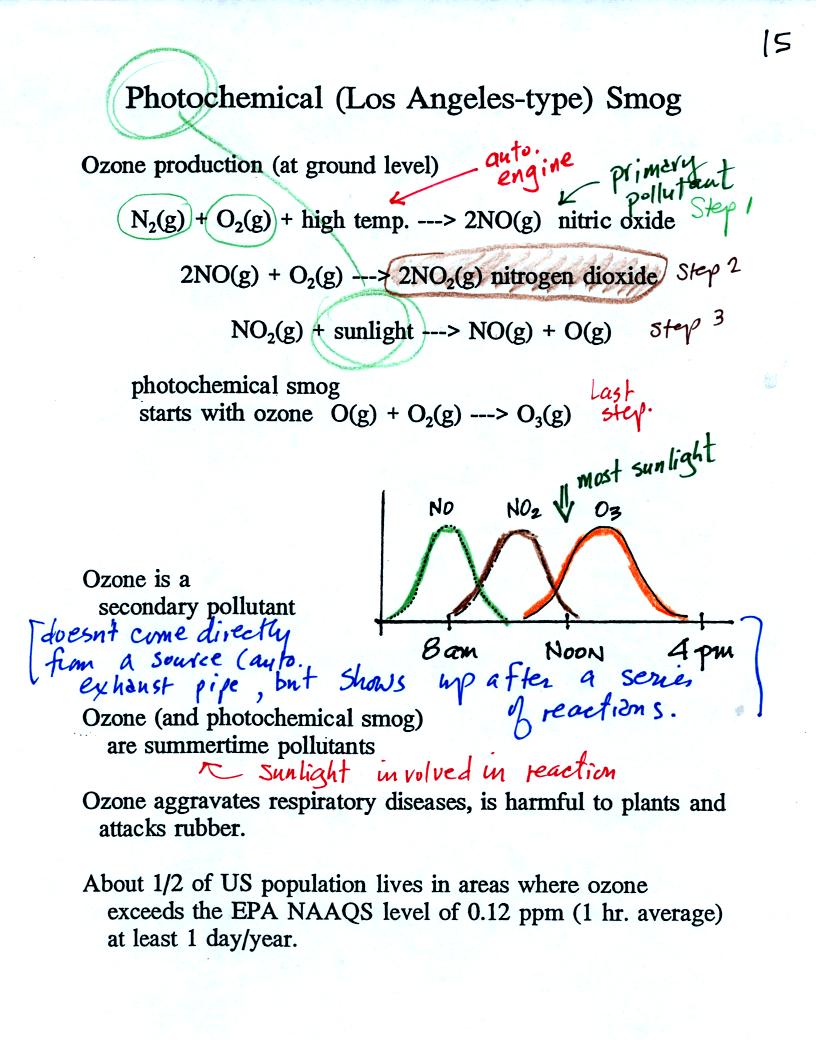 15
Photochemical (Los Angeles-type) Smog
Ozone production (at ground level)
auto.
engine
primary
pollutant
N₂(g) + O₂(g) + high temp. ---> 2NO(g) nitric oxide
Step 1
2NO(g) + O₂(g) ---> 2NO₂(g) nitrogen dioxide Step 2
NO₂(g) + sunlight ---> NO(g) + O(g) Step 3
photochemical smog
starts with ozone O(g) + O₂(g) ---> O₃(g)
Last
step.
most sunlight
NO NO₂ O₃
8am NOON 4pm
Ozone is a
secondary pollutant
doesn't come directly
from a source (auto.
exhaust pipe, but shows up after a series
of reactions.
Ozone (and photochemical smog)
are summertime pollutants
sunlight involved in reaction
Ozone aggravates respiratory diseases, is harmful to plants and
attacks rubber.
About 1/2 of US population lives in areas where ozone
exceeds the EPA NAAQS level of 0.12 ppm (1 hr. average)
at least 1 day/year.